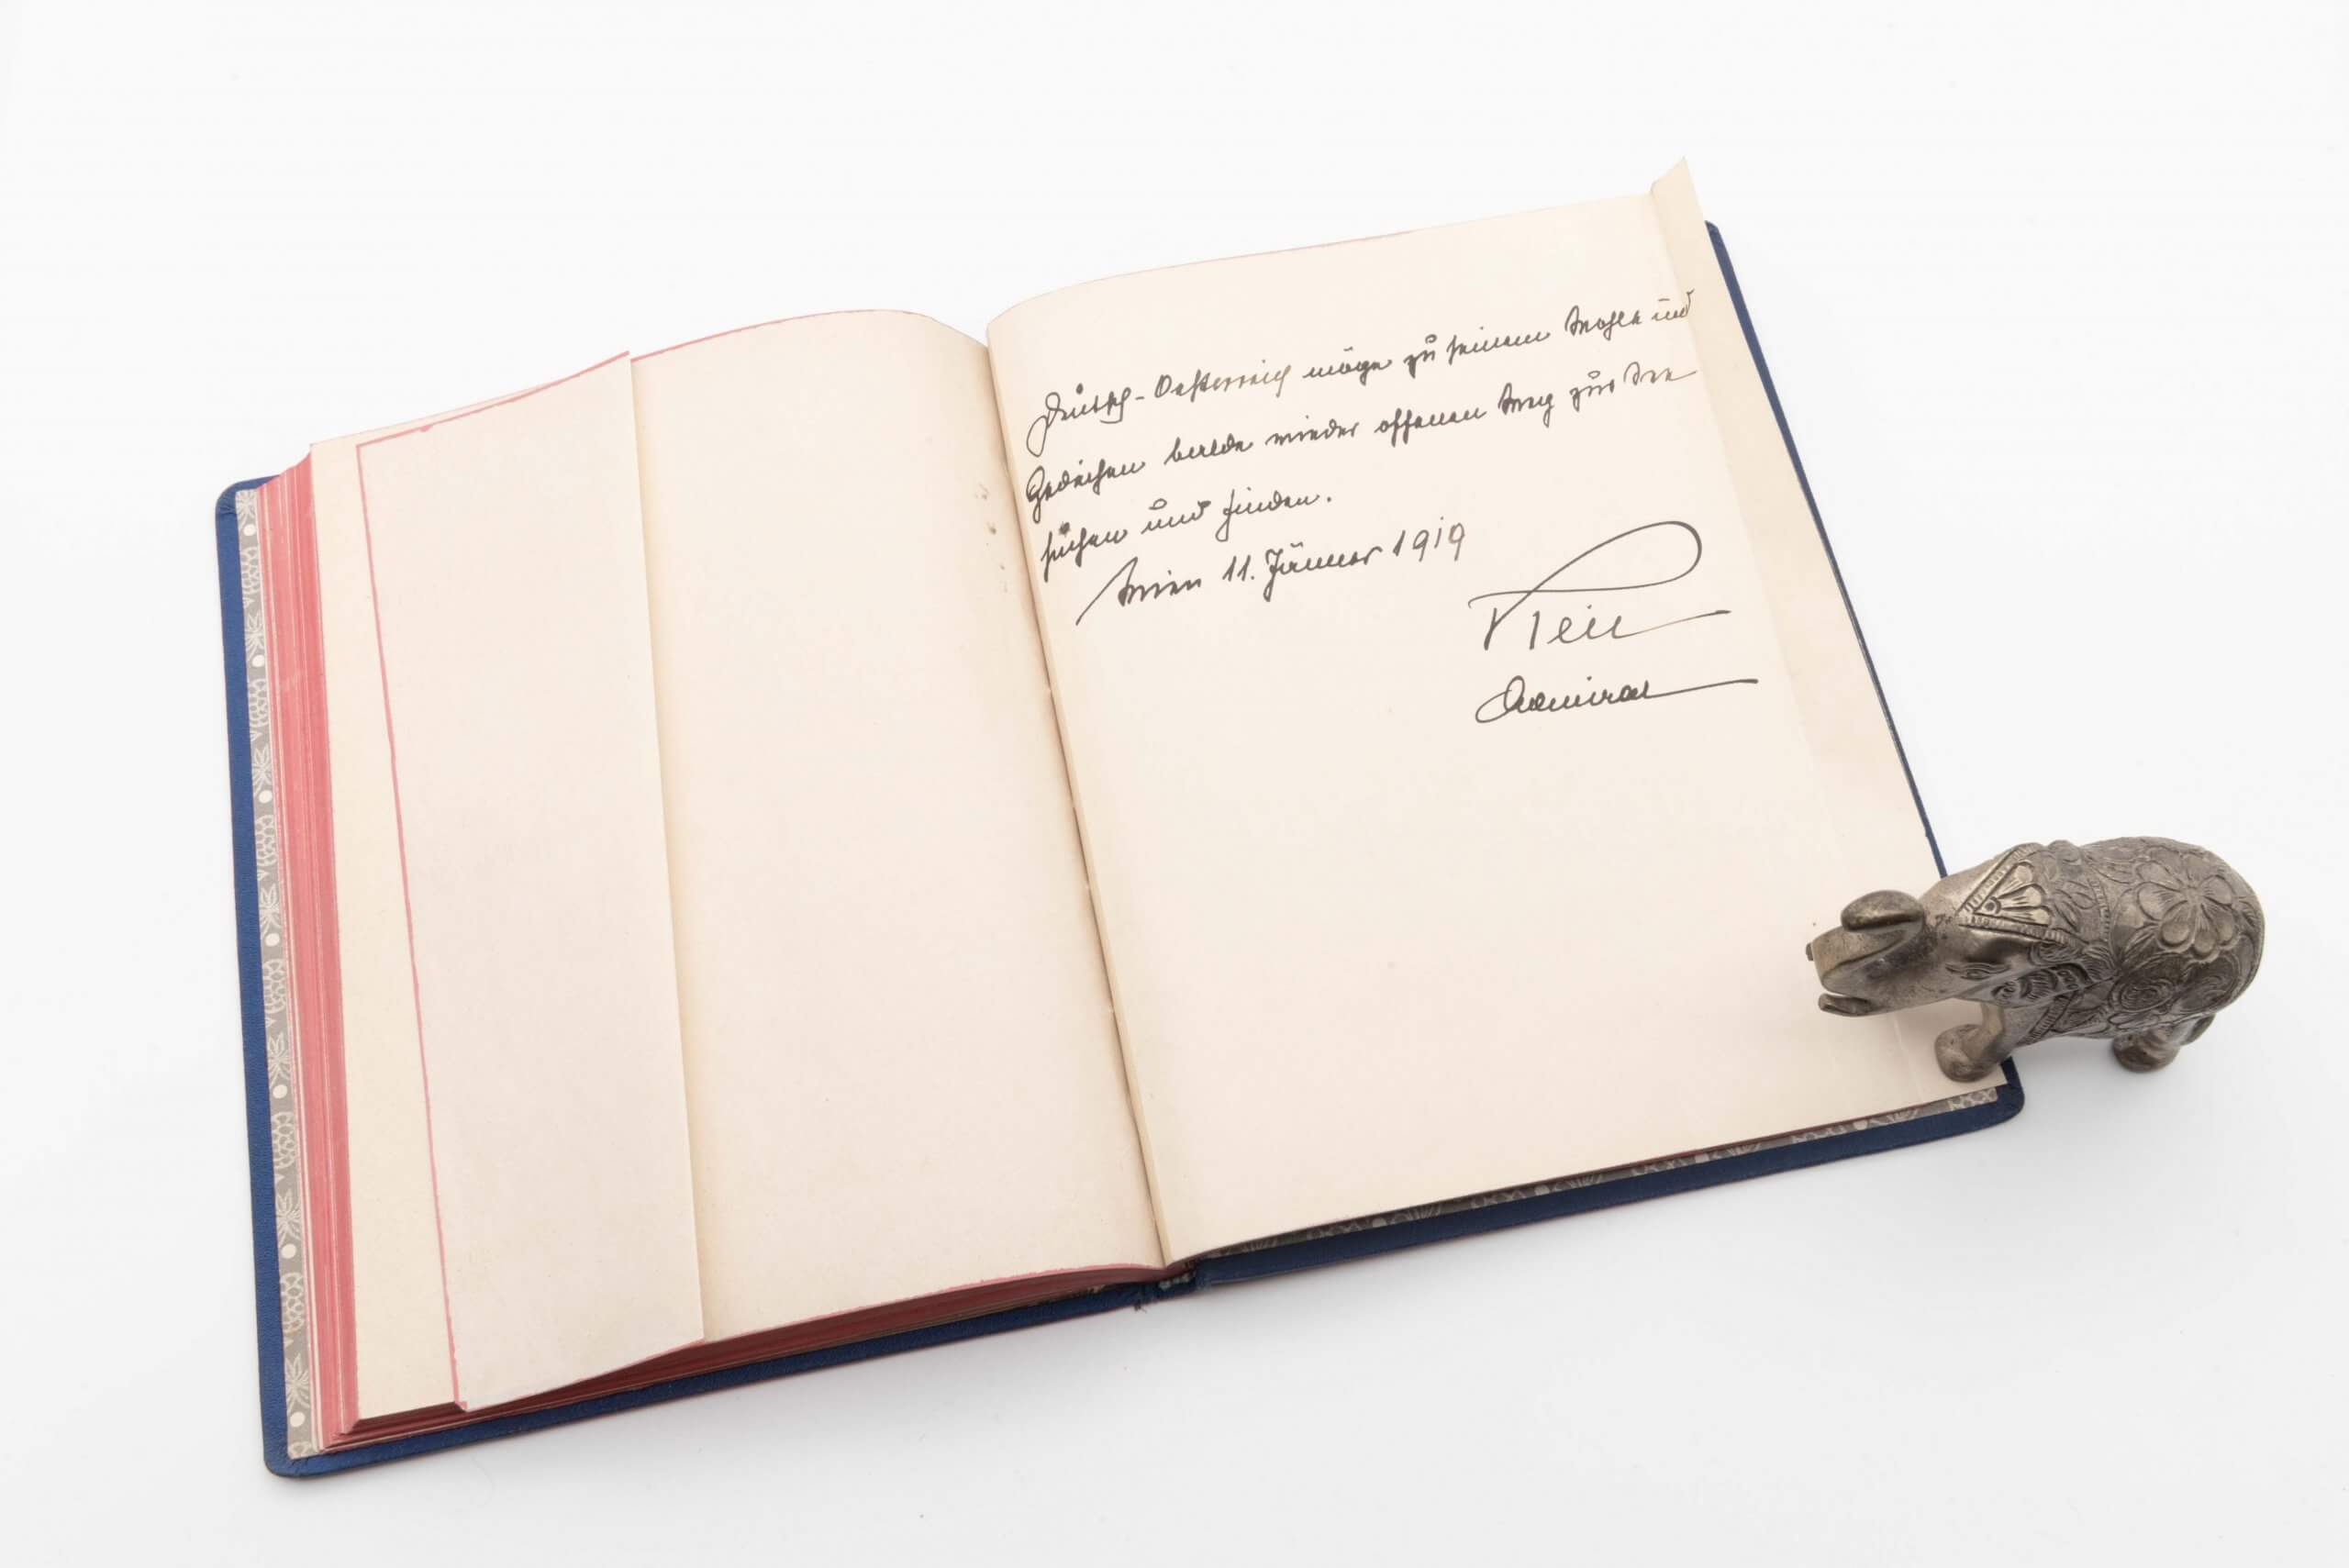 Deutsch-Oesterreich möge zu seinem Wohle und
Gedeihen balde wieder offenen Weg zur See
suchen und finden.
Wien 11. Jänner 1919
Keil
Admiral